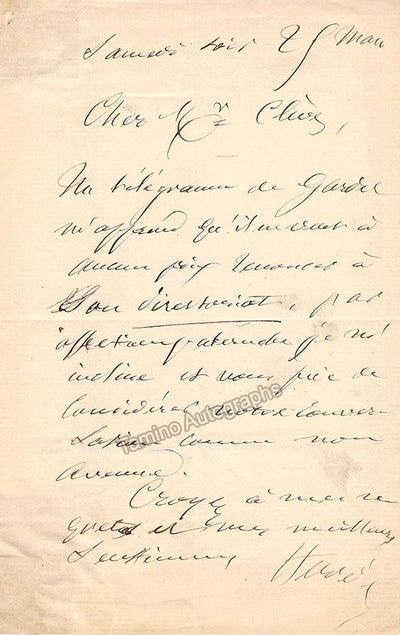 Samedi soir 25 Mars
Cher Mr Clèves,
Un télégramme de Gardel
m'apprend qu'il ne veut à
aucun prix renoncer à
Son directorat, par
affection paternelle je m'
incline et vous prie de
Considérer notre Conver-
sation comme non
Avenue.
Croyez à mes re
grets et mes meilleurs
Sentiments
Hervé
Tamino Autographs